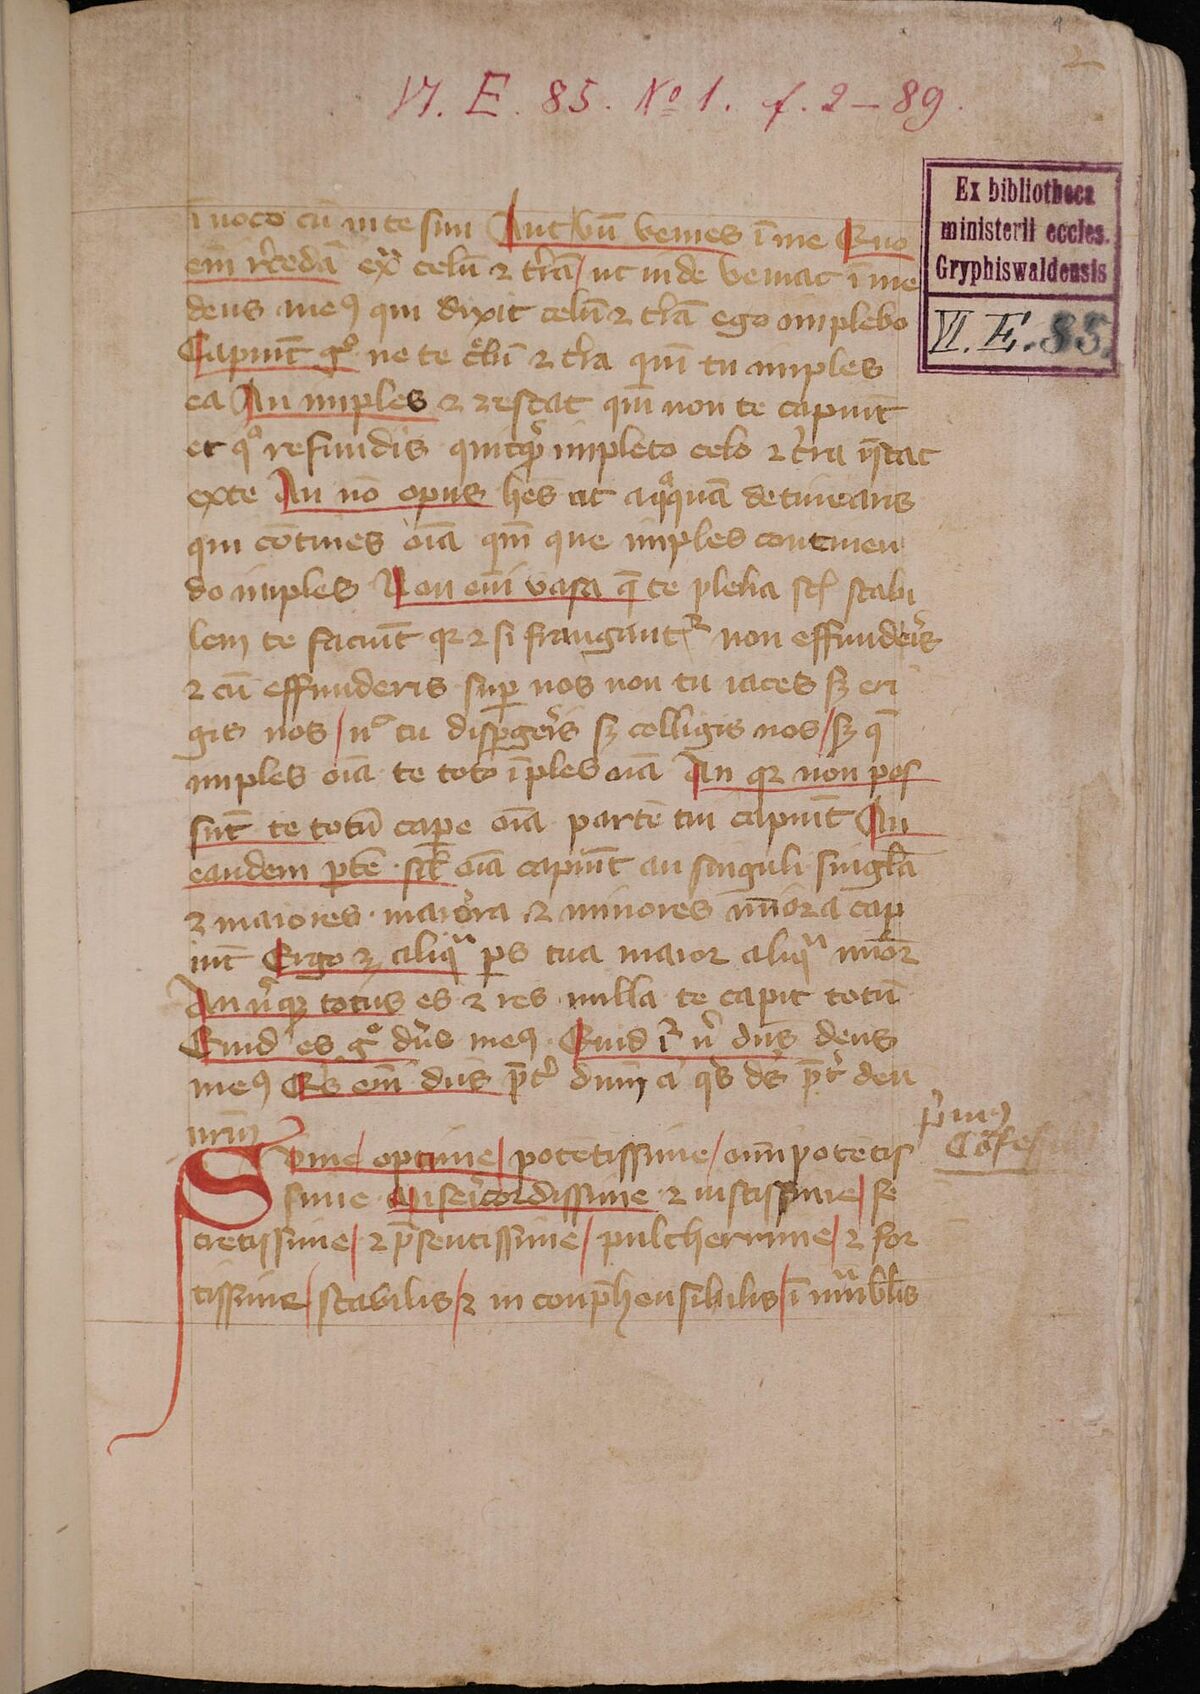 VI. E. 85. No 1. f. 2–89.
2
Ex bibliotheca
ministerii eccles.
Gryphiswaldensis
VI. E. 85.
īuoco cū in te sim Aut vn̄ venies ī me Quo
em̄ rͥcedā ext̄ᵃ celū ⁊ trͥā / ut inde veniat ī me
deus meꝰ qui dixit celū ⁊ trͥā ego implebo
Capiūt gͦ ne te celū ⁊ trͥa qm̄ tu imples
ea An imples ⁊ restat qm̄ non te capiūt
et qͦ refundis quitqͥd impleto celo ⁊ trͥa restat
ex te An nō opus hēs ut aqͦquā detinearis
qui cōtines oīa qm̄ que imples continen
do imples Non em̄ vasa q̄ te plena sūt stabi
lem te faciūt qꝛ ⁊ si frangantᷣ non effunderis
⁊ cū effunderis suꝑ nos non tu iaces sꝫ eri
gis nos / nͨ tu disꝑgeris sꝫ colligis nos / sꝫ q̄
imples oīa te toto īples oīa An qꝛ non pos
sūt te totū caꝑe oīa partē tui capiūt An
eandem ꝑtē siĺ oīa capiūt an singuli singĺa
⁊ maiores maiora ⁊ minores mīora capi
iūt Ergo ⁊ aliqᵃ ꝑs tua maior aliqᵃ mīor
An ubiqꝫ totus es ⁊ res nulla te capit totū
Quid es gͦ dn̄s meꝰ Quid rͦ nͥ dn̄s deus
meꝰ Qͥs em̄ dn̄s p̄tͥ dnm̄ aͭ qͥs dˢ p̄tͥ deu
nr̄m
pͥmꝰ
Cōfess
Sūme / optime / potētissime / omīpotētis
sime miserͥcordissime ⁊ iustissime / se
cretissime / ⁊ p̄sentissime / pulcherrime / ⁊ for
tissime / stabilis / ⁊ in conp̄hensibilis / ī mutabl̄is